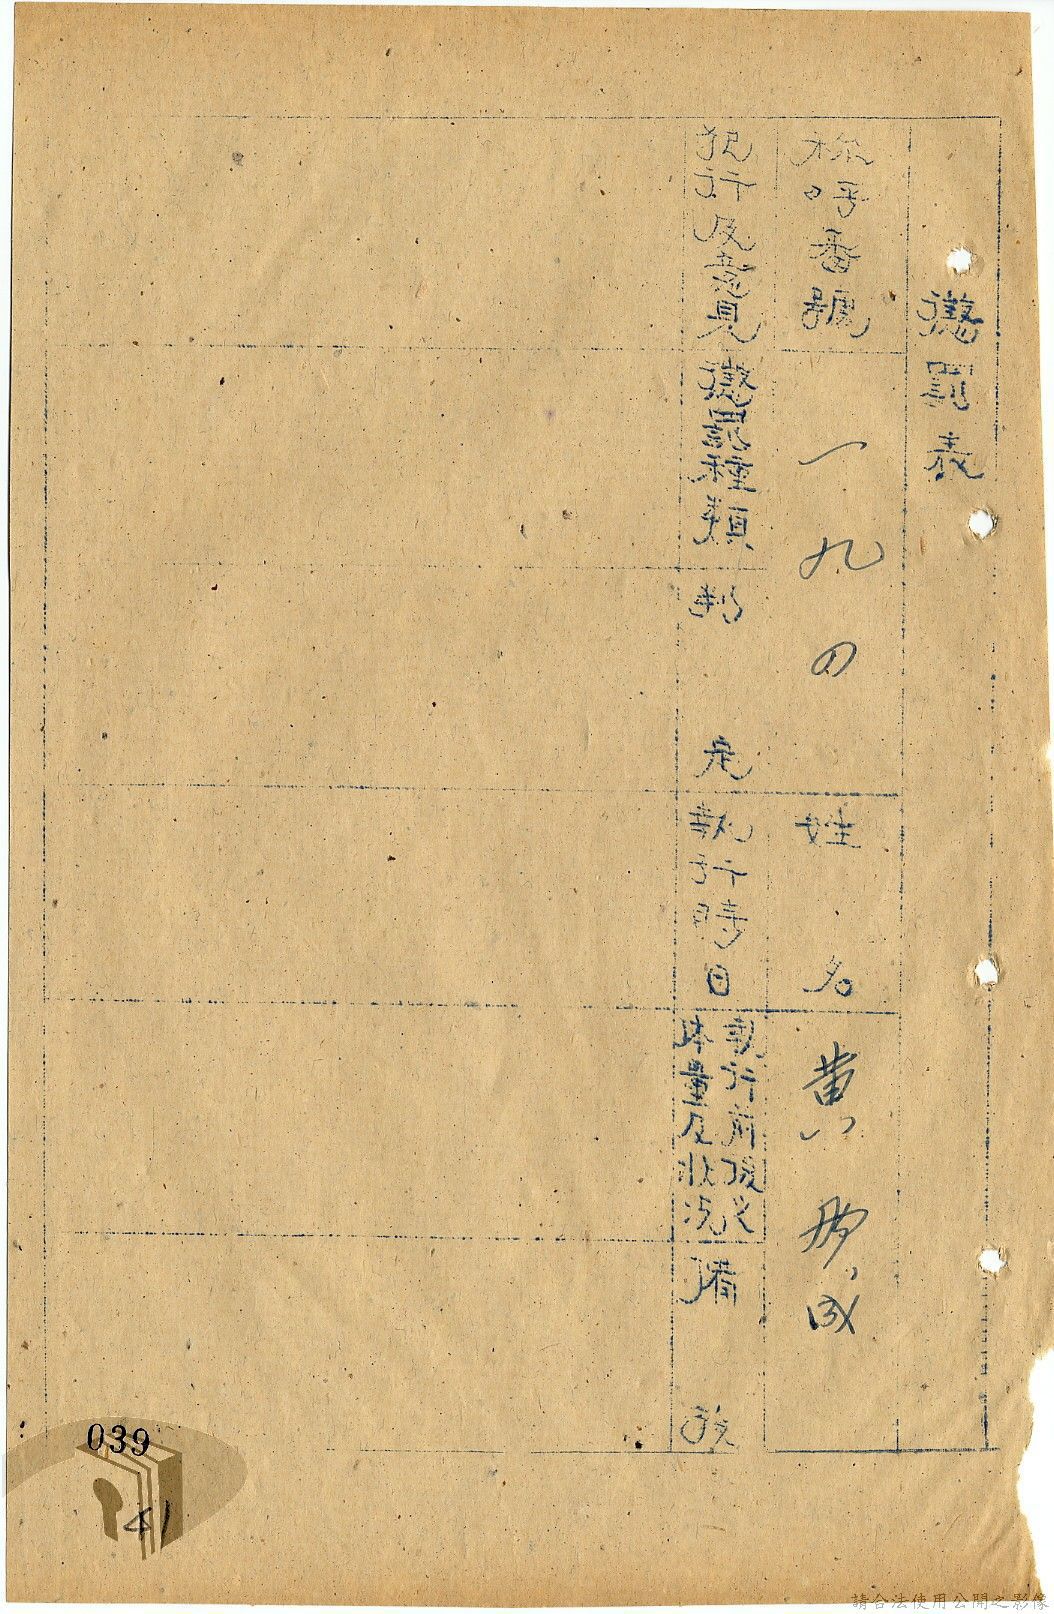 懲罰表
称呼番號
一九四
姓名
黄
成
犯行及意見
懲罰種類
判定
執行時日
執行前後之
体量及狀況
備考
039
41
請合法使用公開之影像